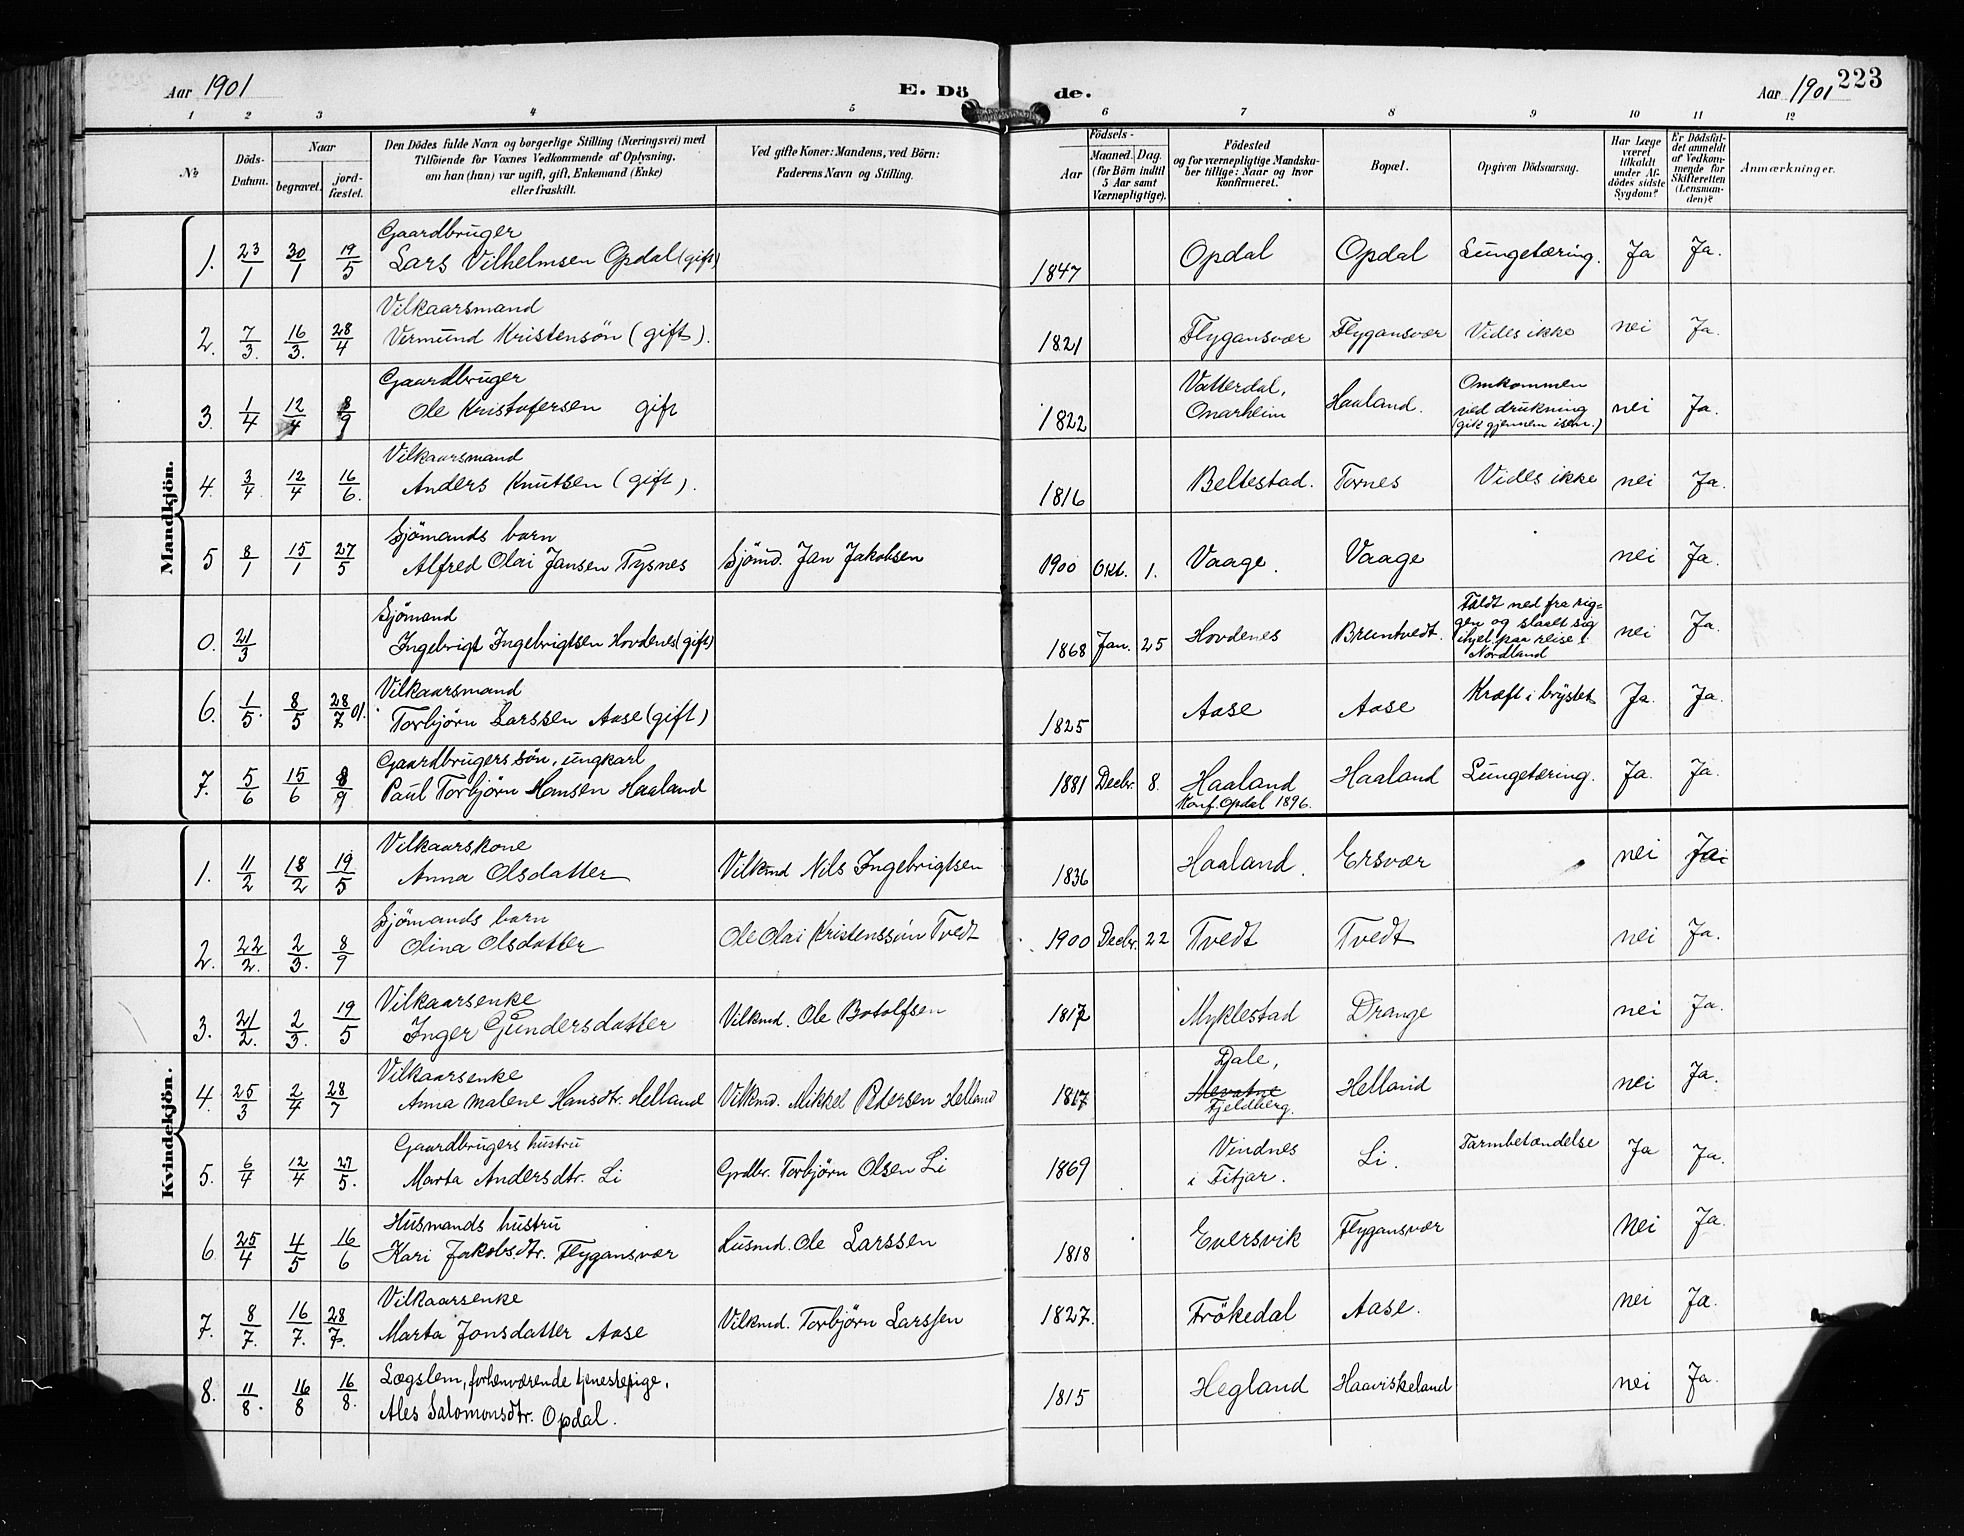 Aar 1901 E. Dö de. Aar 1901 223
1 2 3 4 5 6 7 8 9 10 11 12
Nr.
Döds-Datum.
Naar
begravet.
jord-fæstet.
Den Dödes fulde Navn og borgerlige Stilling (Næringsvei) med
Tilföiende for Voxnes Vedkommende af Oplysning,
om han (hun) var ugift, gift, Enkemand (Enke)
eller fraskilt.
Ved gifte Koner: Mandens, ved Börn:
Faderens Navn og Stilling.
Födsels-
Aar
Maaned. Dag.
(for Börn indtil
5 Aar samt
Værnepligtige).
Födested
og for værnepligtige Mandska-
ber tillige: Naar og hvor
konfirmeret.
Bopæl.
Opgiven Dödsaarsag.
Har Læge
været
tilkaldt
under Af-
dödes sidste
Sygdom?
Er Dödsfal-
det anmeldt
af Vedkom-
mende for
Skifteretten
(Lensman-
den)?
Anmærkninger.
Mandkjön.
Gaardbruger
1. 23/1 30/1 19/5 Lars Vilhelmsen Opdal (gift) 1847 Opdal Opdal Lungetæring. Ja Ja.
Vilkaarsmand
2. 7/3. 16/3. 28/4 Vermund Kristensön (gift). 1821 Flygansvær Flygansvær Vides ikke nei Ja.
Gaardbruger Vatterdal, Omkommen
3. 1/4 12/4 8/9 Ole Kristofersen gift 1822 Onarheim Haaland. ved drukning nei Ja.
(gik gjennem isen.)
Vilkaarsmand
4. 3/4. 12/4 16/6. Anders Knutsen (gift). 1816 Beltestad. Tornes Vides ikke nei Ja.
Sjömands barn
5 8/1 15/1 27/5 Alfred Olai Jansen Tysnes Sjömd. Jan Jakobsen 1900 Okt. 1. Vaage. Vaage nei Ja.
Sjömand Faldt ned fra rig=
gen og slaalt sig
0. 21/3 Ingebrigt Ingebrigtsen Hovdenes (gift) 1868 Jan. 25 Hovdenes Bruntvedt. ihjel paa reise i nei Ja.
Nordland
Vilkaarsmand
6. 1/5. 8/5 28/7 01. Torbjörn Larssen Aase (gift) 1825 Aase Aase Kræft i brystet Ja. Ja.
Gaardbrugers sön, ungkarl
7. 5/6 15/6 8/9 Paul Torbjörn Hansen Haaland 1881 Decbr. 8. Haaland Haaland Lungetæring. Ja. Ja.
Konf. Opdal 1896.
Kvindekjön.
Vilkaarskone
1. 11/2 18/2 19/5 Anna Olsdatter Vilkmd Nils Ingebrigtsen 1836 Haaland. Ersvær nei Ja
Sjömands barn
2. 22/2. 2/3. 8/9 Olina Olsdatter Ole Olai Kristenssön Tvedt 1900 Decbr. 22 Tvedt Tvedt nei Ja.
Vilkaarsenke
3. 21/2. 2/3. 19/5 Inger Gundersdatter Vilkmd. Ole Botolfsen 1817 Myklestad Drange nei Ja.
Vilkaarsenke Dale,
4. 25/3 2/4 28/7 Anna Malene Hansdtr. Helland Vilkmd. Mikkel Pedersen Helland 1817 Helland nei Ja.
Fjeldberg.
Gaardbrugers hustru Vindnes Tarmbetændelse
5. 6/4 12/4 27/5. Marta Andersdtr. Li Grdbr. Torbjörn Olsen Li 1869 i Fitjar. Li. Ja Ja.
Husmands hustru
6. 25/4 4/5 16/6 Kari Jakobsdtr. Flygansvær Husmd. Ole Larssen 1818 Eversvik Flygansvær nei Ja.
Vilkaarsenke
7. 8/7. 16/7. 28/7. Marta Jonsdatter Aase Vilkmd. Torbjörn Larssen 1827. Frökedal Aase. nei Ja.
Lægslem, forhenværende tjenestepige,
8. 11/8. 16/8 16/8. Ales Salomonsdtr. Opdal. 1815 Hegland Haaviskeland nei Ja.